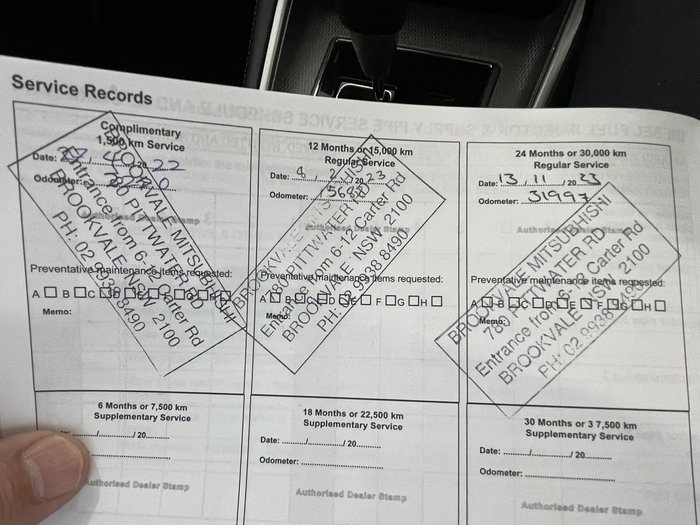 Service Records
Complimentary
1,500 km Service
Date: 27 / 4 / 20 22
Odometer:
BROOKVALE MITSUBISHI
780 PITTWATER RD
Entrance from 6-12 Carter Rd
BROOKVALE NSW 2100
PH: 02 9938 8490
Preventative maintenance items requested:
A B C D E F G H
Memo:
12 Months or 15,000 km
Regular Service
Date: 8 / 2 / 20 23
Odometer:
Authorised Dealer Stamp
BROOKVALE MITSUBISHI
780 PITTWATER RD
Entrance from 6-12 Carter Rd
BROOKVALE NSW 2100
PH: 02 9938 8490
Preventative maintenance items requested:
A B C D E F G H
Memo:
24 Months or 30,000 km
Regular Service
Date: 13 / 11 / 20 23
Odometer: 31997
Authorised
BROOKVALE MITSUBISHI
780 PITTWATER RD
Entrance from 6-12 Carter Rd
BROOKVALE NSW 2100
PH: 02 9938 8490
Preventative maintenance items requested:
A B C D E F G H
Memo:
6 Months or 7,500 km
Supplementary Service
/ / 20
Authorised Dealer Stamp
18 Months or 22,500 km
Supplementary Service
Date: / / 20
Odometer:
Authorised Dealer Stamp
30 Months or 3 7,500 km
Supplementary Service
Date: / / 20
Odometer:
Authorised Dealer Stamp